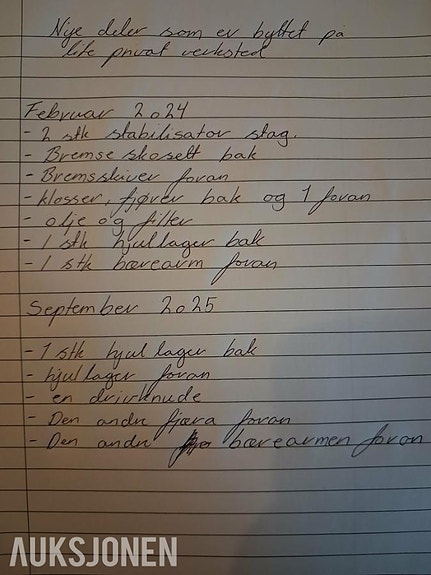 Nye deler som er byttet på
lite privat verksted
Februar 2024
- 2 stk stabilisator stag.
- Bremseskosett bak
- Bremsskiver foran
- klosser, fjører bak og 1 foran
- olje og filter
- 1 stk hjullager bak
- 1 stk bærearm foran
September 2025
- 1 stk hjullager bak
- hjullager foran
- en drivknude
- Den andre fjæra foran
- Den andre bærearmen foran
AUKSJONEN